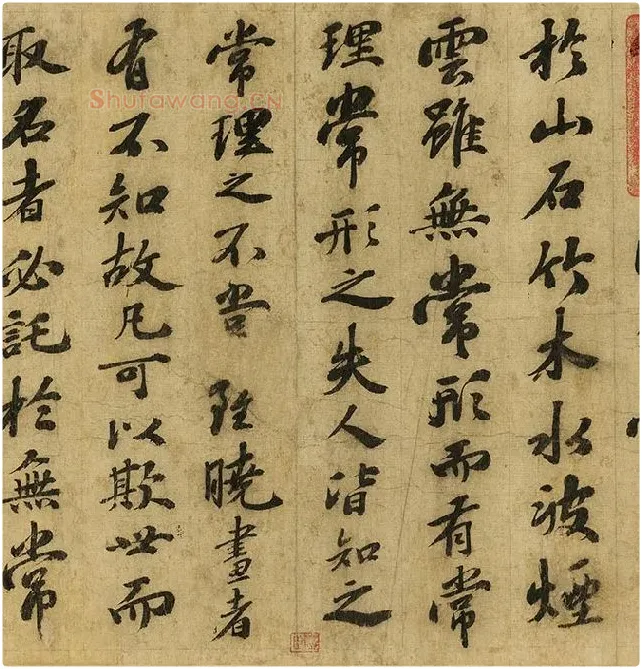 於山石竹木水波煙
雲雖無常形而有常
理常形之失人皆知之
常理之不當雖曉畫者
有不知故凡可以欺世而
取名者必託於無常
Shufawang.CN